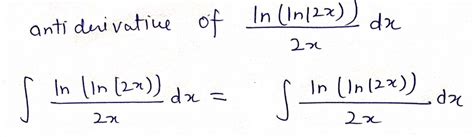 anti derivative of ln (ln(2x)) / 2x dx
∫ ln (ln (2x)) / 2x dx = ∫ ln (ln(2x)) / 2x . dx